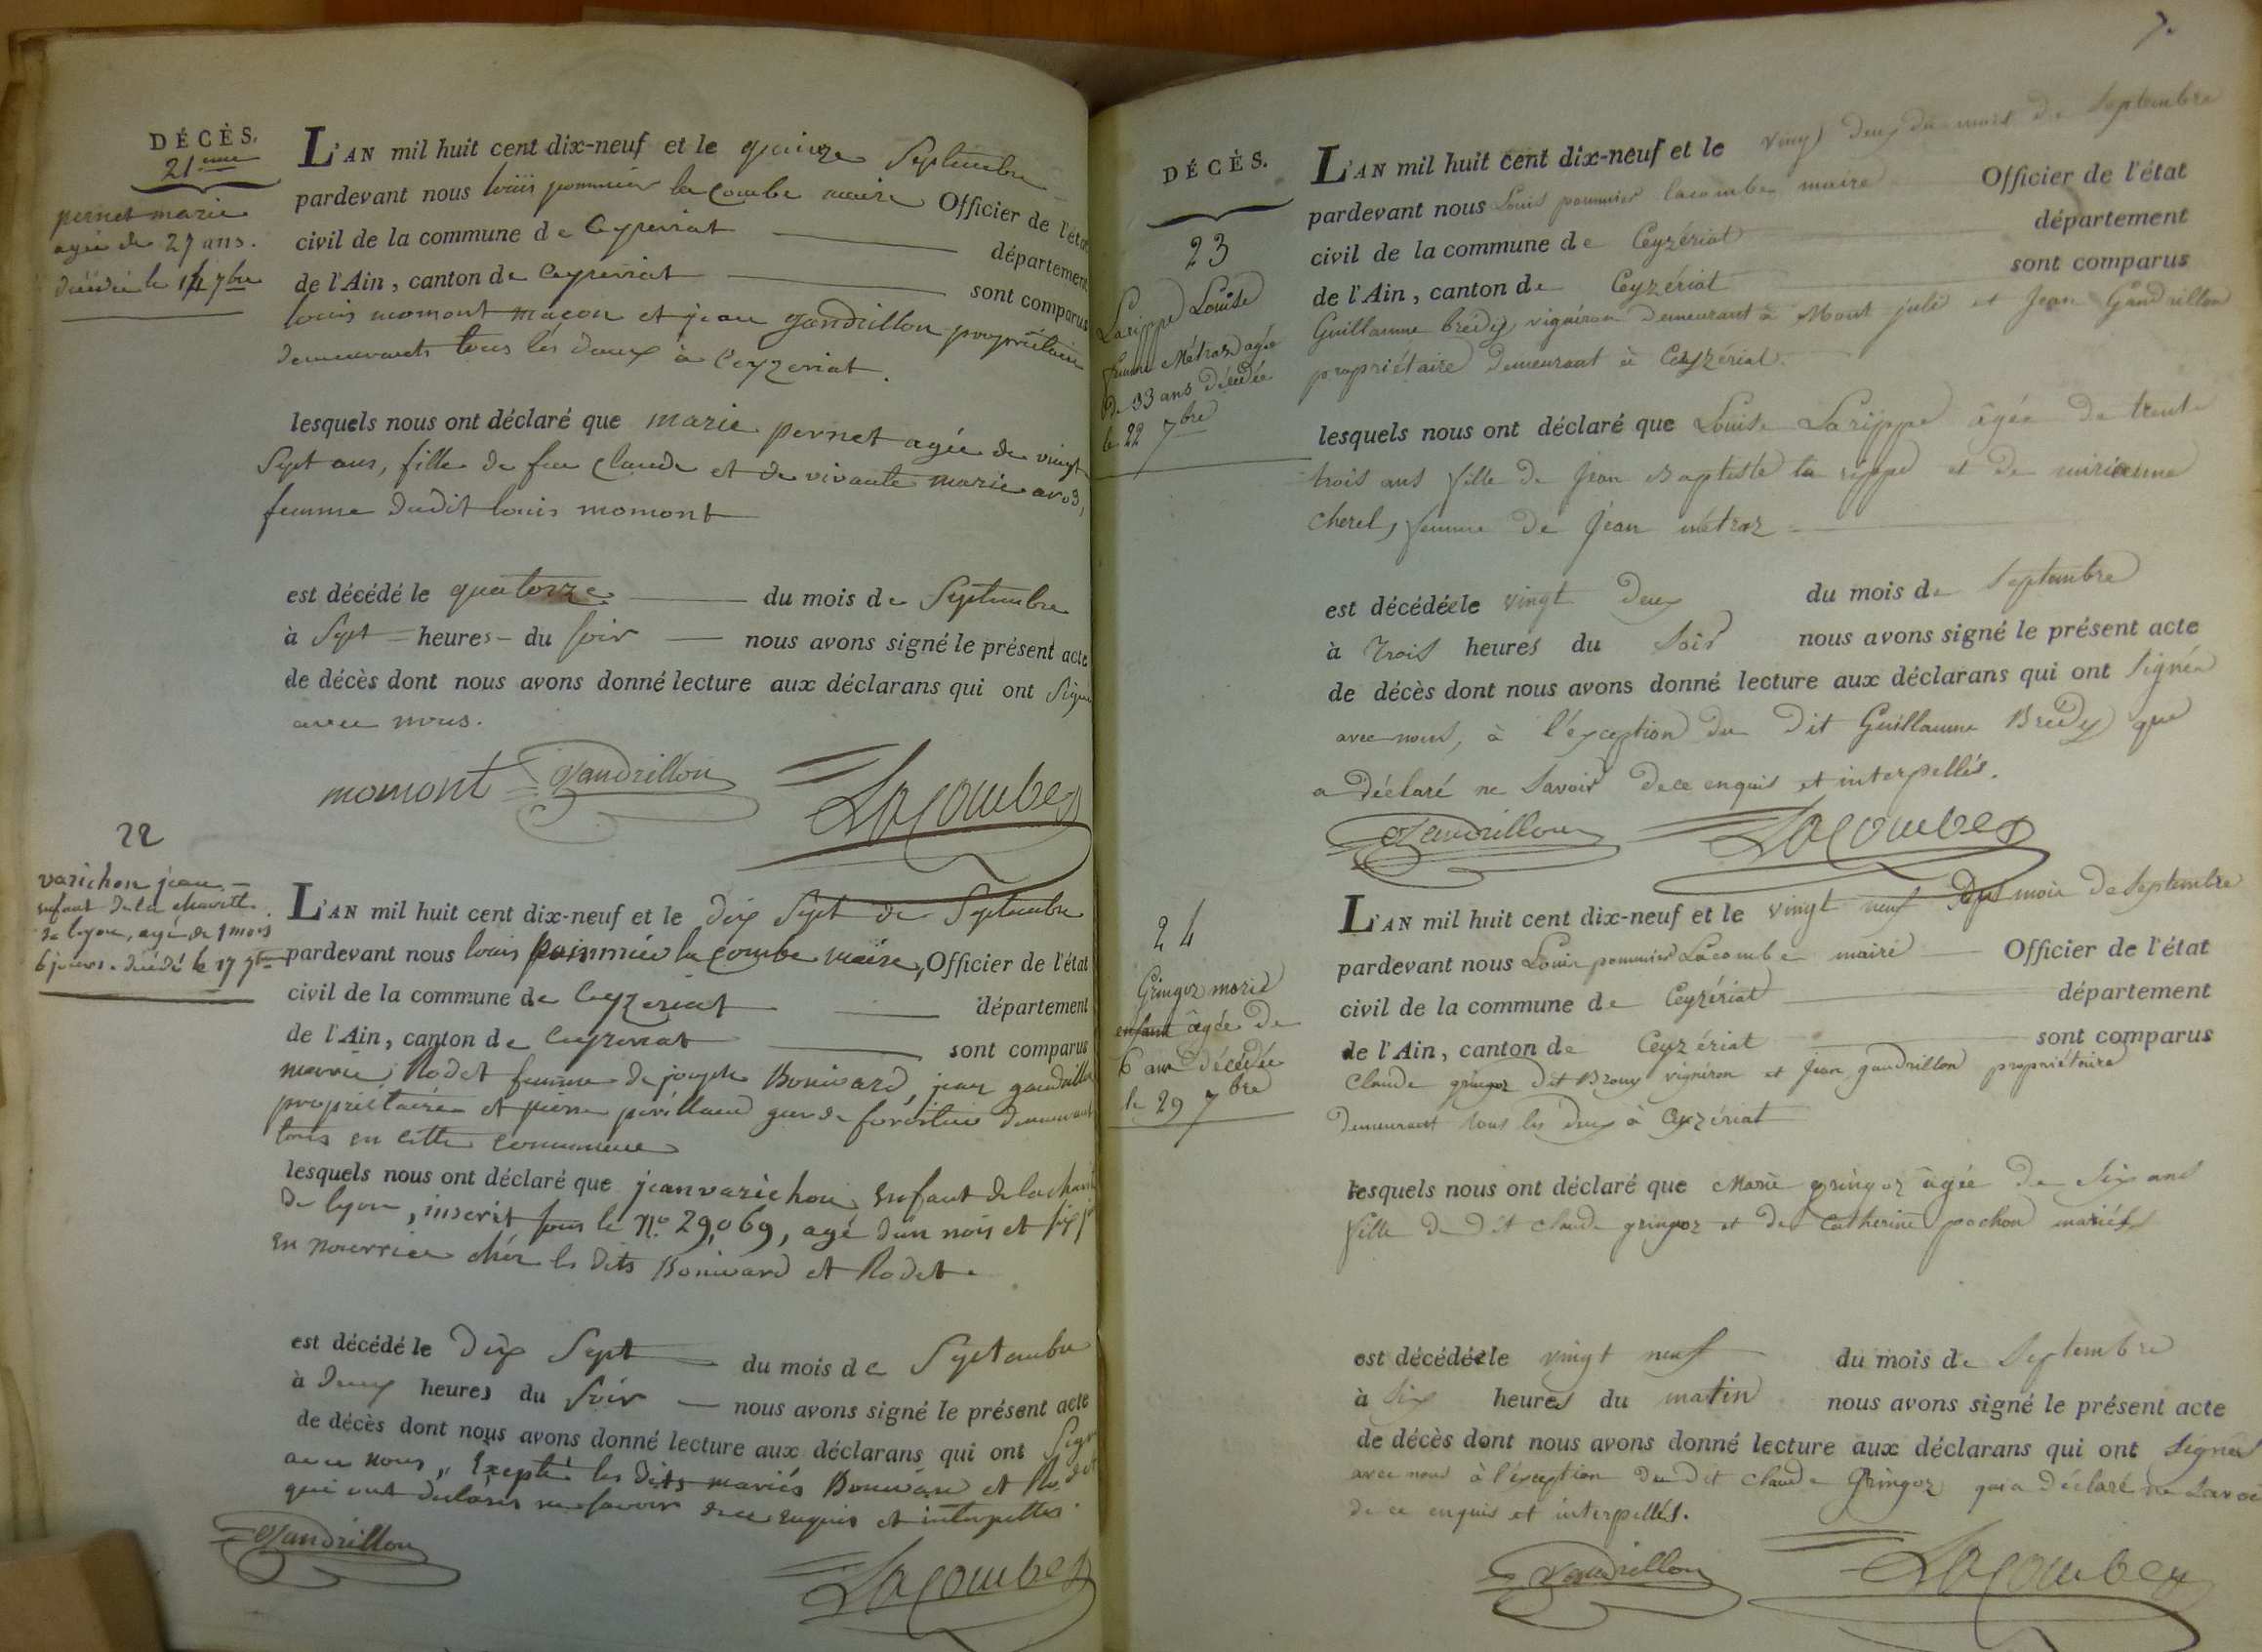 DÉCÈS.
21eme
pernet marie
agée de 27 ans.
décédée le 14 7bre
L'AN mil huit cent dix-neuf et le quinze Septembre
pardevant nous louis pommier lacombe maire Officier de l'état
civil de la commune de Ceyzeriat département
de l'Ain, canton de Ceyzeriat sont comparus
louis momont maçon et jean gandrillon propriétaire
demeurants tous les deux à Ceyzeriat.
lesquels nous ont déclaré que marie pernet agée de vingt
Sept ans, fille de feu Claude et de vivante marie avos,
femme dudit louis momont
est décédé le quatorze du mois de Septembre
à Sept heures du soir nous avons signé le présent acte
de décès dont nous avons donné lecture aux déclarans qui ont Signé
avec nous.
momont Gandrillon Lacombe
22
varichon jean
enfant de la charité
de lyon, agé de 1 mois
6 jours. décédé le 17 7bre
L'AN mil huit cent dix-neuf et le dix Sept de Septembre
pardevant nous louis pommier la combe maire, Officier de l'état
civil de la commune de Ceyzeriat département
de l'Ain, canton de Ceyzeriat sont comparus
marie Rodet femme de joseph Bonivard, jean gandrillon
propriétaire et pierre perillaud garde forestier demeurant
tous en cette commune
lesquels nous ont déclaré que jean varichon, Enfant de la charité
de lyon, inscrit sous le No. 29,069, agé d'un mois et six jrs
en nourrice chéz les dits Bonivard et Rodet.
est décédé le Dix Sept du mois de Septembre
à Deux heures du Soir nous avons signé le présent acte
de décès dont nous avons donné lecture aux déclarans qui ont Signé
avec nous, Excepté les dits mariés Bonivard et Rodet
qui ont déclarés ne savoir de ce enquis et interpellés.
Gandrillon Lacombe
7.
DÉCÈS.
23
Larippe Louise
femme Métraz agée
de 33 ans décédée
le 22 7bre
L'AN mil huit cent dix-neuf et le vingt deux du mois de Septembre
pardevant nous Louis pommier lacombe maire Officier de l'état
civil de la commune de Ceyzériat département
de l'Ain, canton de Ceyzériat sont comparus
Guillaume bredy vigneron demeurant à Mont july et Jean Gandrillon
propriétaire demeurant à Ceyzériat.
lesquels nous ont déclaré que Louise Larippe âgée de trente
trois ans fille de Jean Baptiste la rippe et de marianne
cherel, femme de Jean métraz
est décédée le vingt deux du mois de Septembre
à trois heures du Soir nous avons signé le présent acte
de décès dont nous avons donné lecture aux déclarans qui ont Signéa
avec nous, à l'exception du dit Guillaume Bredy que
a déclaré ne Savoir de ce enquis et interpellés.
Gandrillon Lacombe
24
Gringoz marie
enfant âgée de
6 ans décédée
le 29 7bre
L'AN mil huit cent dix-neuf et le vingt neuf du mois de Septembre
pardevant nous Louis pommier Lacombe maire Officier de l'état
civil de la commune de Ceyzériat département
de l'Ain, canton de Ceyzériat sont comparus
Claude gringoz dit Brouy vigneron et Jean gandrillon propriétaire
demeurant tous les deux à Ceyzériat
lesquels nous ont déclaré que Marie gringoz âgée de Six ans
fille de dit claude gringoz et de Catherine pochon mariés
est décédée le vingt neuf du mois de Septembre
à Six heures du matin nous avons signé le présent acte
de décès dont nous avons donné lecture aux déclarans qui ont Signés
avec nous à l'exception du dit Claude Gringoz qui a déclaré ne Savoir
de ce enquis et interpellés.
Gandrillon Lacombe